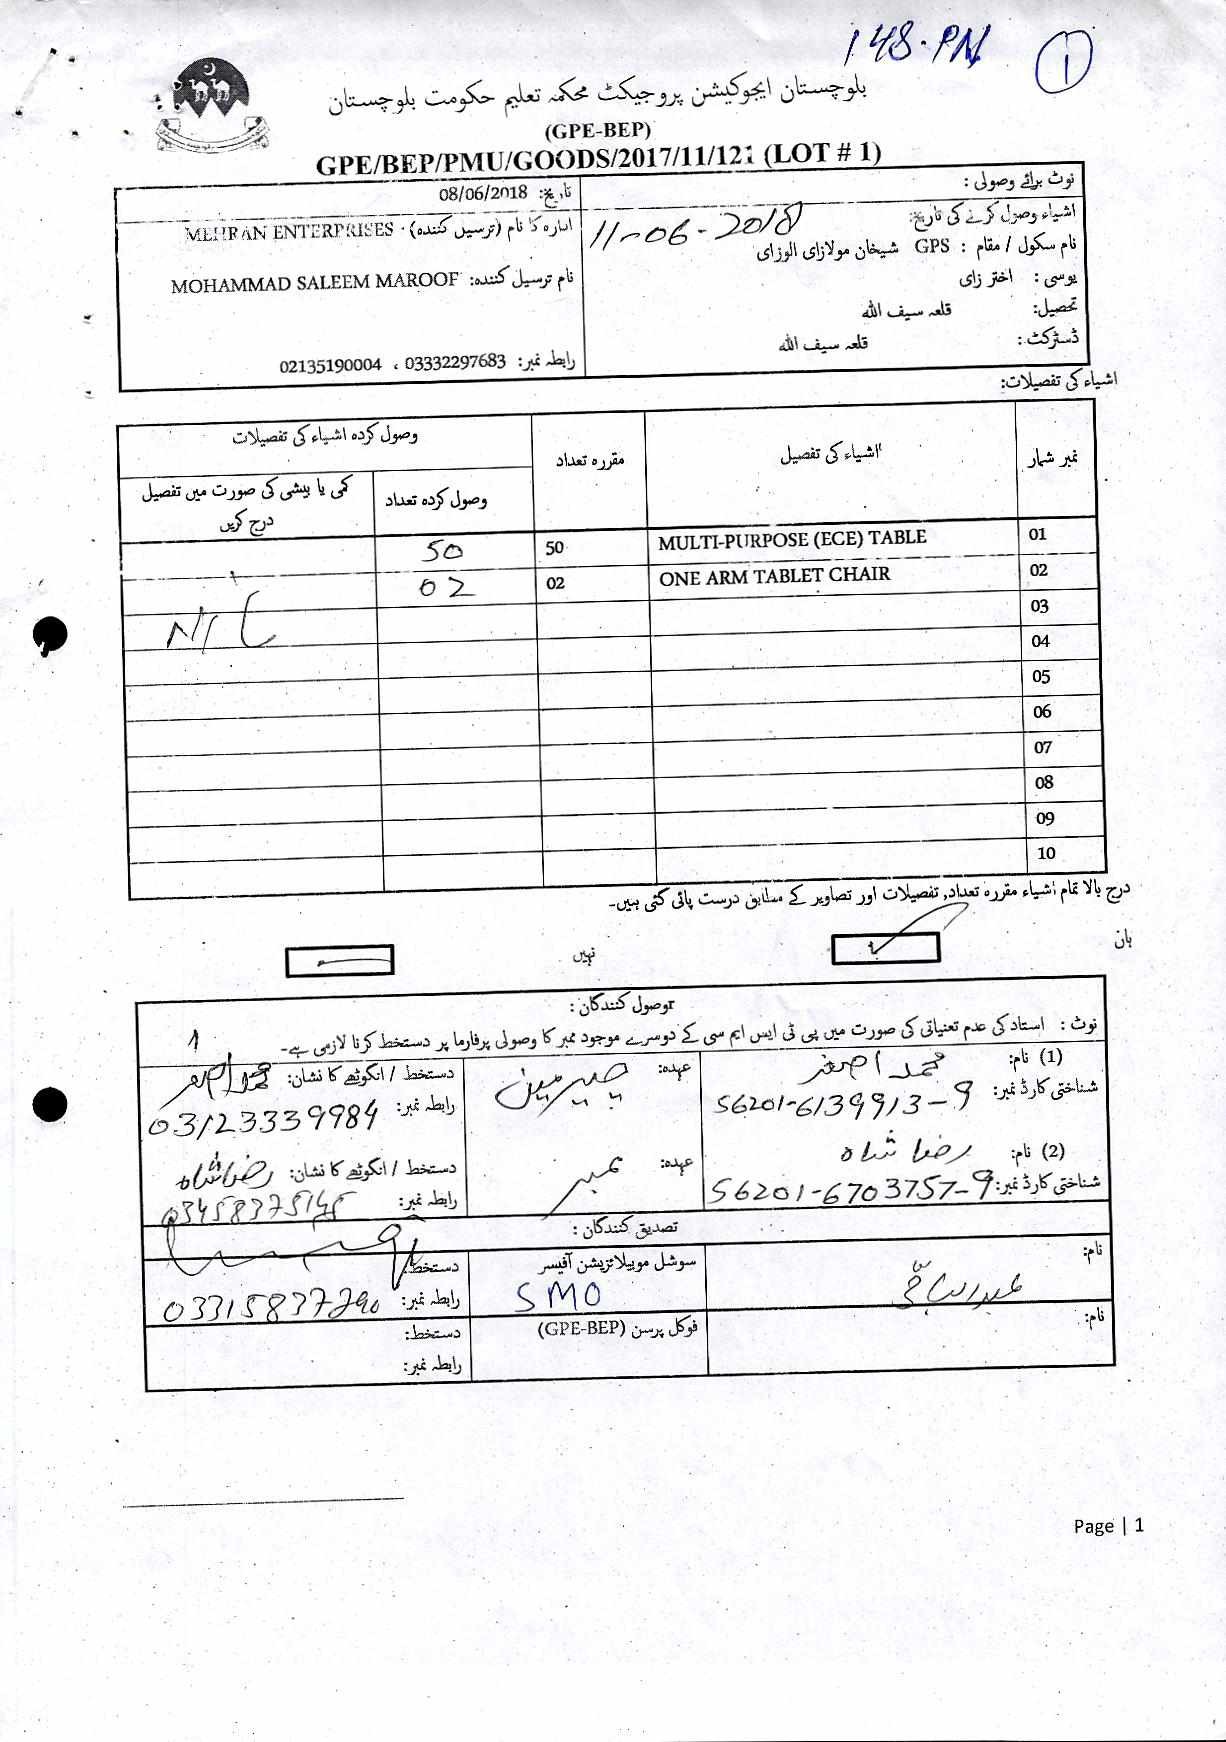 148-PN
1
بلوچستان ایجوکیشن پروجیکٹ محکمہ تعلیم حکومت بلوچستان
(GPE-BEP)
GPE/BEP/PMU/GOODS/2017/11/121 (LOT # 1)
نوٹ برائے وصولی :
اشیاء وصول کرنے کی تاریخ: 11-06-2018
نام سکول / مقام : GPS شیخان مولازای الوزای
یوسی : اختر زای
تحصیل: قلعہ سیف اللہ
ڈسٹرکٹ: قلعہ سیف اللہ
تاریخ: 08/06/2018
ادارہ کا نام (ترسیل کنندہ) - MEHRAN ENTERPRISES
نام ترسیل کنندہ: MOHAMMAD SALEEM MAROOF
رابطہ نمبر: 03332297683 ، 02135190004
اشیاء کی تفصیلات:
نمبر شمار اشیاء کی تفصیل مقررہ تعداد وصول کردہ اشیاء کی تفصیلات
وصول کردہ تعداد کمی یا بیشی کی صورت میں تفصیل درج کریں
01 MULTI-PURPOSE (ECE) TABLE 50 50
02 ONE ARM TABLET CHAIR 02 02
03
04
05
06
07
08
09
10
درج بالا تمام اشیاء مقررہ تعداد, تفصیلات اور تصاویر کے مطابق درست پائی گئی ہیں۔
ہاں نہیں
وصول کنندگان :
نوٹ : استاد کی عدم تعیناتی کی صورت میں پی ٹی ایس ایم سی کے دوسرے موجود ممبر کا وصولی پرفارما پر دستخط کرنا لازمی ہے۔
(1) نام: محمد اصغر عہدہ: چیرمین دستخط / انگوٹھے کا نشان: محمد اصغر
شناختی کارڈ نمبر: 56201-6139913-9 رابطہ نمبر: 03123339984
(2) نام: رضا شاہ عہدہ: ممبر دستخط / انگوٹھے کا نشان: رضا شاہ
شناختی کارڈ نمبر: 56201-6703757-9 رابطہ نمبر: 03458375145
تصدیق کنندگان :
نام: عبدالباقی سوشل موبیلائزیشن آفیسر دستخط:
SMO رابطہ نمبر: 03315837290
نام: فوکل پرسن (GPE-BEP) دستخط:
رابطہ نمبر:
Page | 1